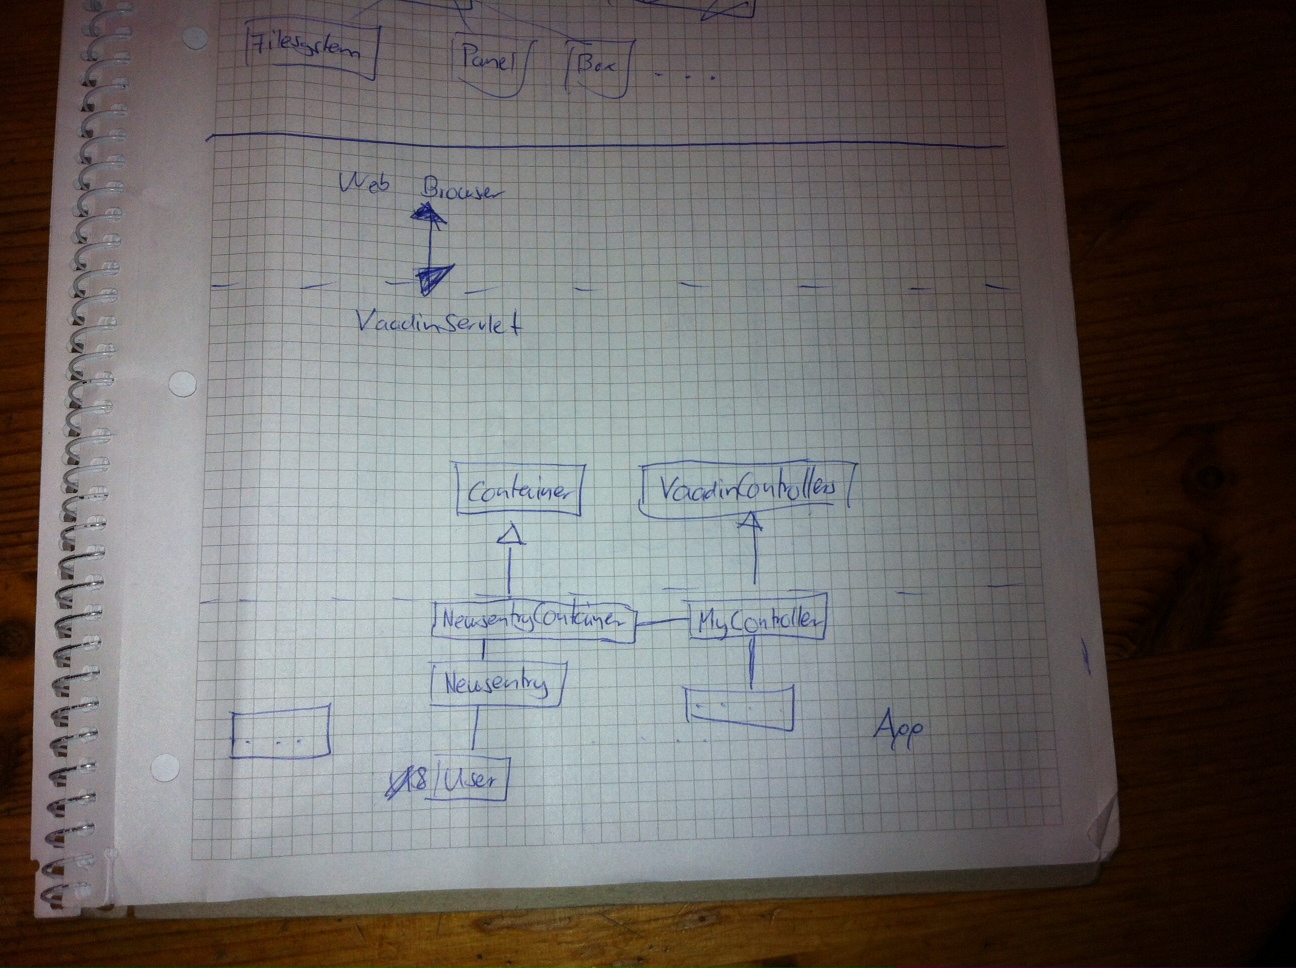 Filesystem Panel Box ...
Web Browser
VaadinServlet
Container VaadinControllers
NewsentryContainer MyController
Newsentry
....
... App
User